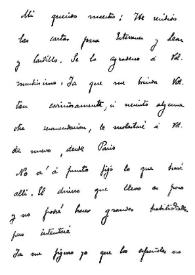 Mi querido maestro: He recibido
las cartas para Estévanez y Llanas
y Ladillo. Se lo agradezco a Vd.
muchísimo. Ya que me brinda Vd.
tan cariñosamente, si necesito alguna
otra recomendación, le molestaré a Vd.
de nuevo, desde París
No a punto fijo lo que haré
allí. El dinero que llevo es poco
y no podré hacer grandes
pero intentaré
Ya me figuro yo que los españoles no